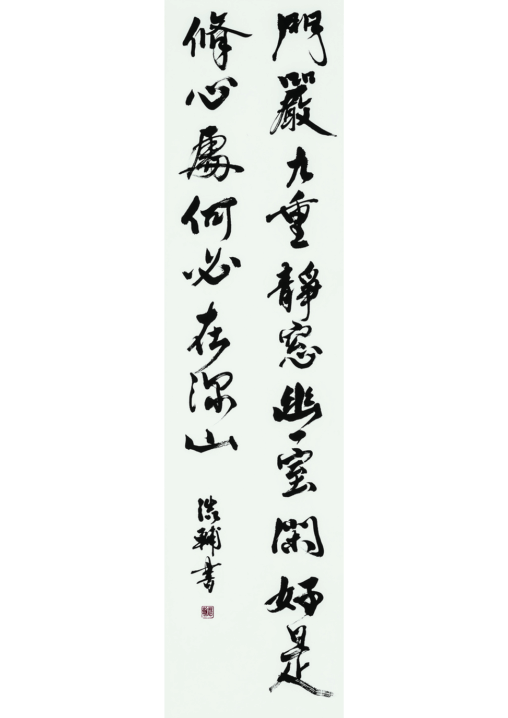 門嚴九重靜窓幽一室閑好是
修心處何必在深山
浩輔書